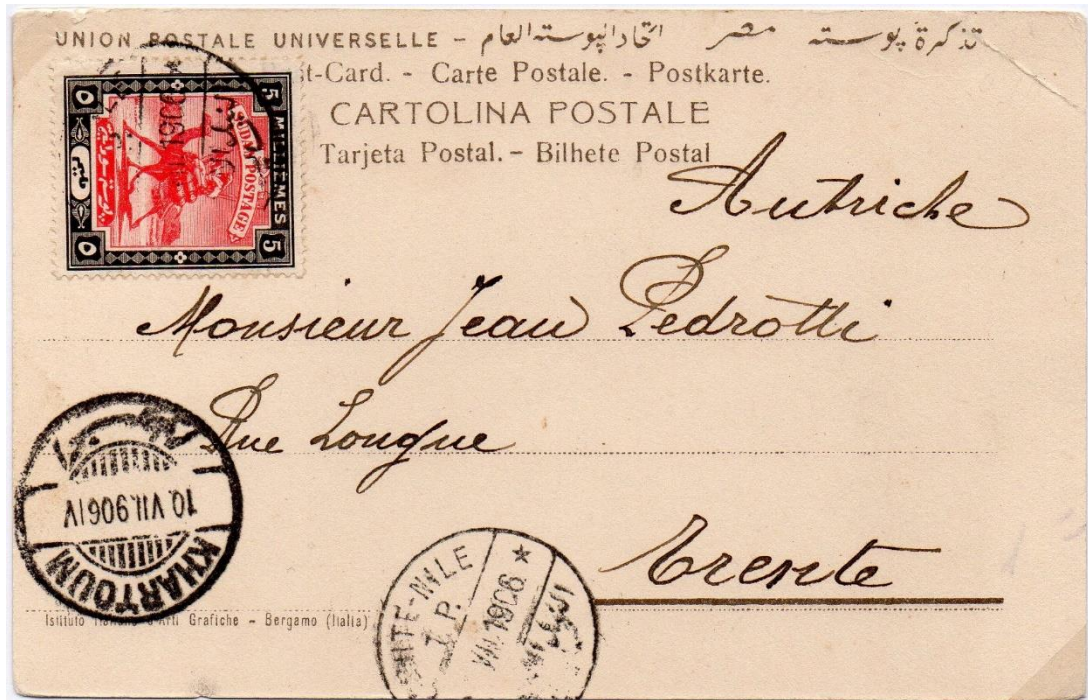 UNION POSTALE UNIVERSELLE - تذكرة پوسته مصر اتحاد البوسته العام
st-Card. - Carte Postale. - Postkarte.
CARTOLINA POSTALE
Tarjeta Postal. - Bilhete Postal
5 MILLIEMES 5
SUDAN POSTAGE
VII 1906
Autriche
Monsieur Jean Pedrotti
Rue Longue
Trente
10.VII.906 IV
KHARTOUM
WHITE-NILE
T. P.
VII.1906
Istituto Italiano d'Arti Grafiche - Bergamo (Italia)